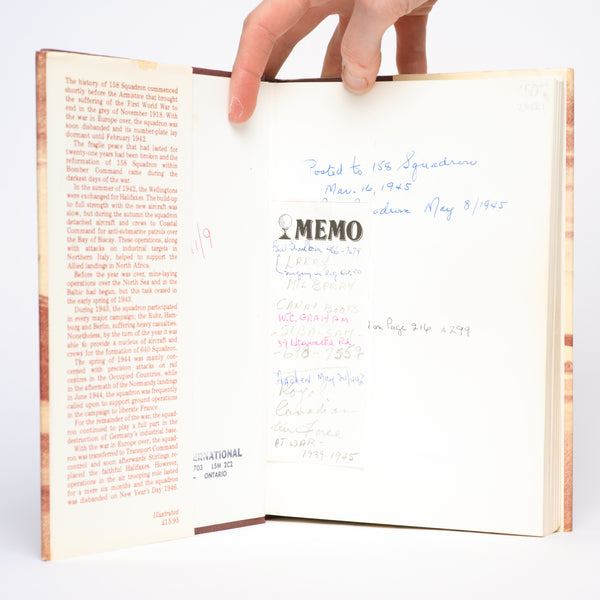 The history of 158 Squadron commenced
shortly before the Armistice that brought
the suffering of the First World War to
end in the grey of November 1918. With
the war in Europe over, the squadron was
soon disbanded and its number-plate lay
dormant until February 1942.
The fragile peace that had lasted for
twenty-one years had been broken and the
reformation of 158 Squadron within
Bomber Command came during the
darkest days of the war.
In the summer of 1942, the Wellingtons
were exchanged for Halifaxes. The build-up
to full strength with the new aircraft was
slow, but during the autumn the squadron
detached aircraft and crews to Coastal
Command for anti-submarine patrols over
the Bay of Biscay. These operations, along
with attacks on industrial targets in
Northern Italy, helped to support the
Allied landings in North Africa.
Before the year was over, mine-laying
operations over the North Sea and in the
Baltic had begun, but this task ceased in the
early spring of 1943.
During 1943, the squadron participated
in every major campaign; the Ruhr, Ham-
burg and Berlin, suffering heavy casualties.
Nonetheless, by the turn of the year it was
able to provide a nucleus of aircraft and
crews for the formation of 640 Squadron.
The spring of 1944 was mainly con-
cerned with precision attacks on rail
centres in the Occupied Countries, while
in the aftermath of the Normandy landings
in June 1944, the squadron was frequently
called upon to support ground operations
in the campaign to liberate France.
For the remainder of the war, the squad-
ron continued to play a full part in the
destruction of Germany's industrial base.
With the war in Europe over, the squad-
ron was transferred to Transport Command
control and soon afterwards Stirlings re-
placed the faithful Halifaxes. However,
operations in the air trooping role lasted
for a mere six months and the squadron
was disbanded on New Year's Day 1946.
Illustrated
£15.95
1/9
ERNATIONAL
703 L5M 2C2
- ONTARIO
Posted to 158 Squadron
Mar. 16, 1945
May 8/1945
MEMO
LARRY
MILBERRY
CANAV BOOKS
W.C. GRAHAM
51 BALSAM
on Page 216 & 299
Royal
Canadian
Air Force
AT WAR -
1939-1945